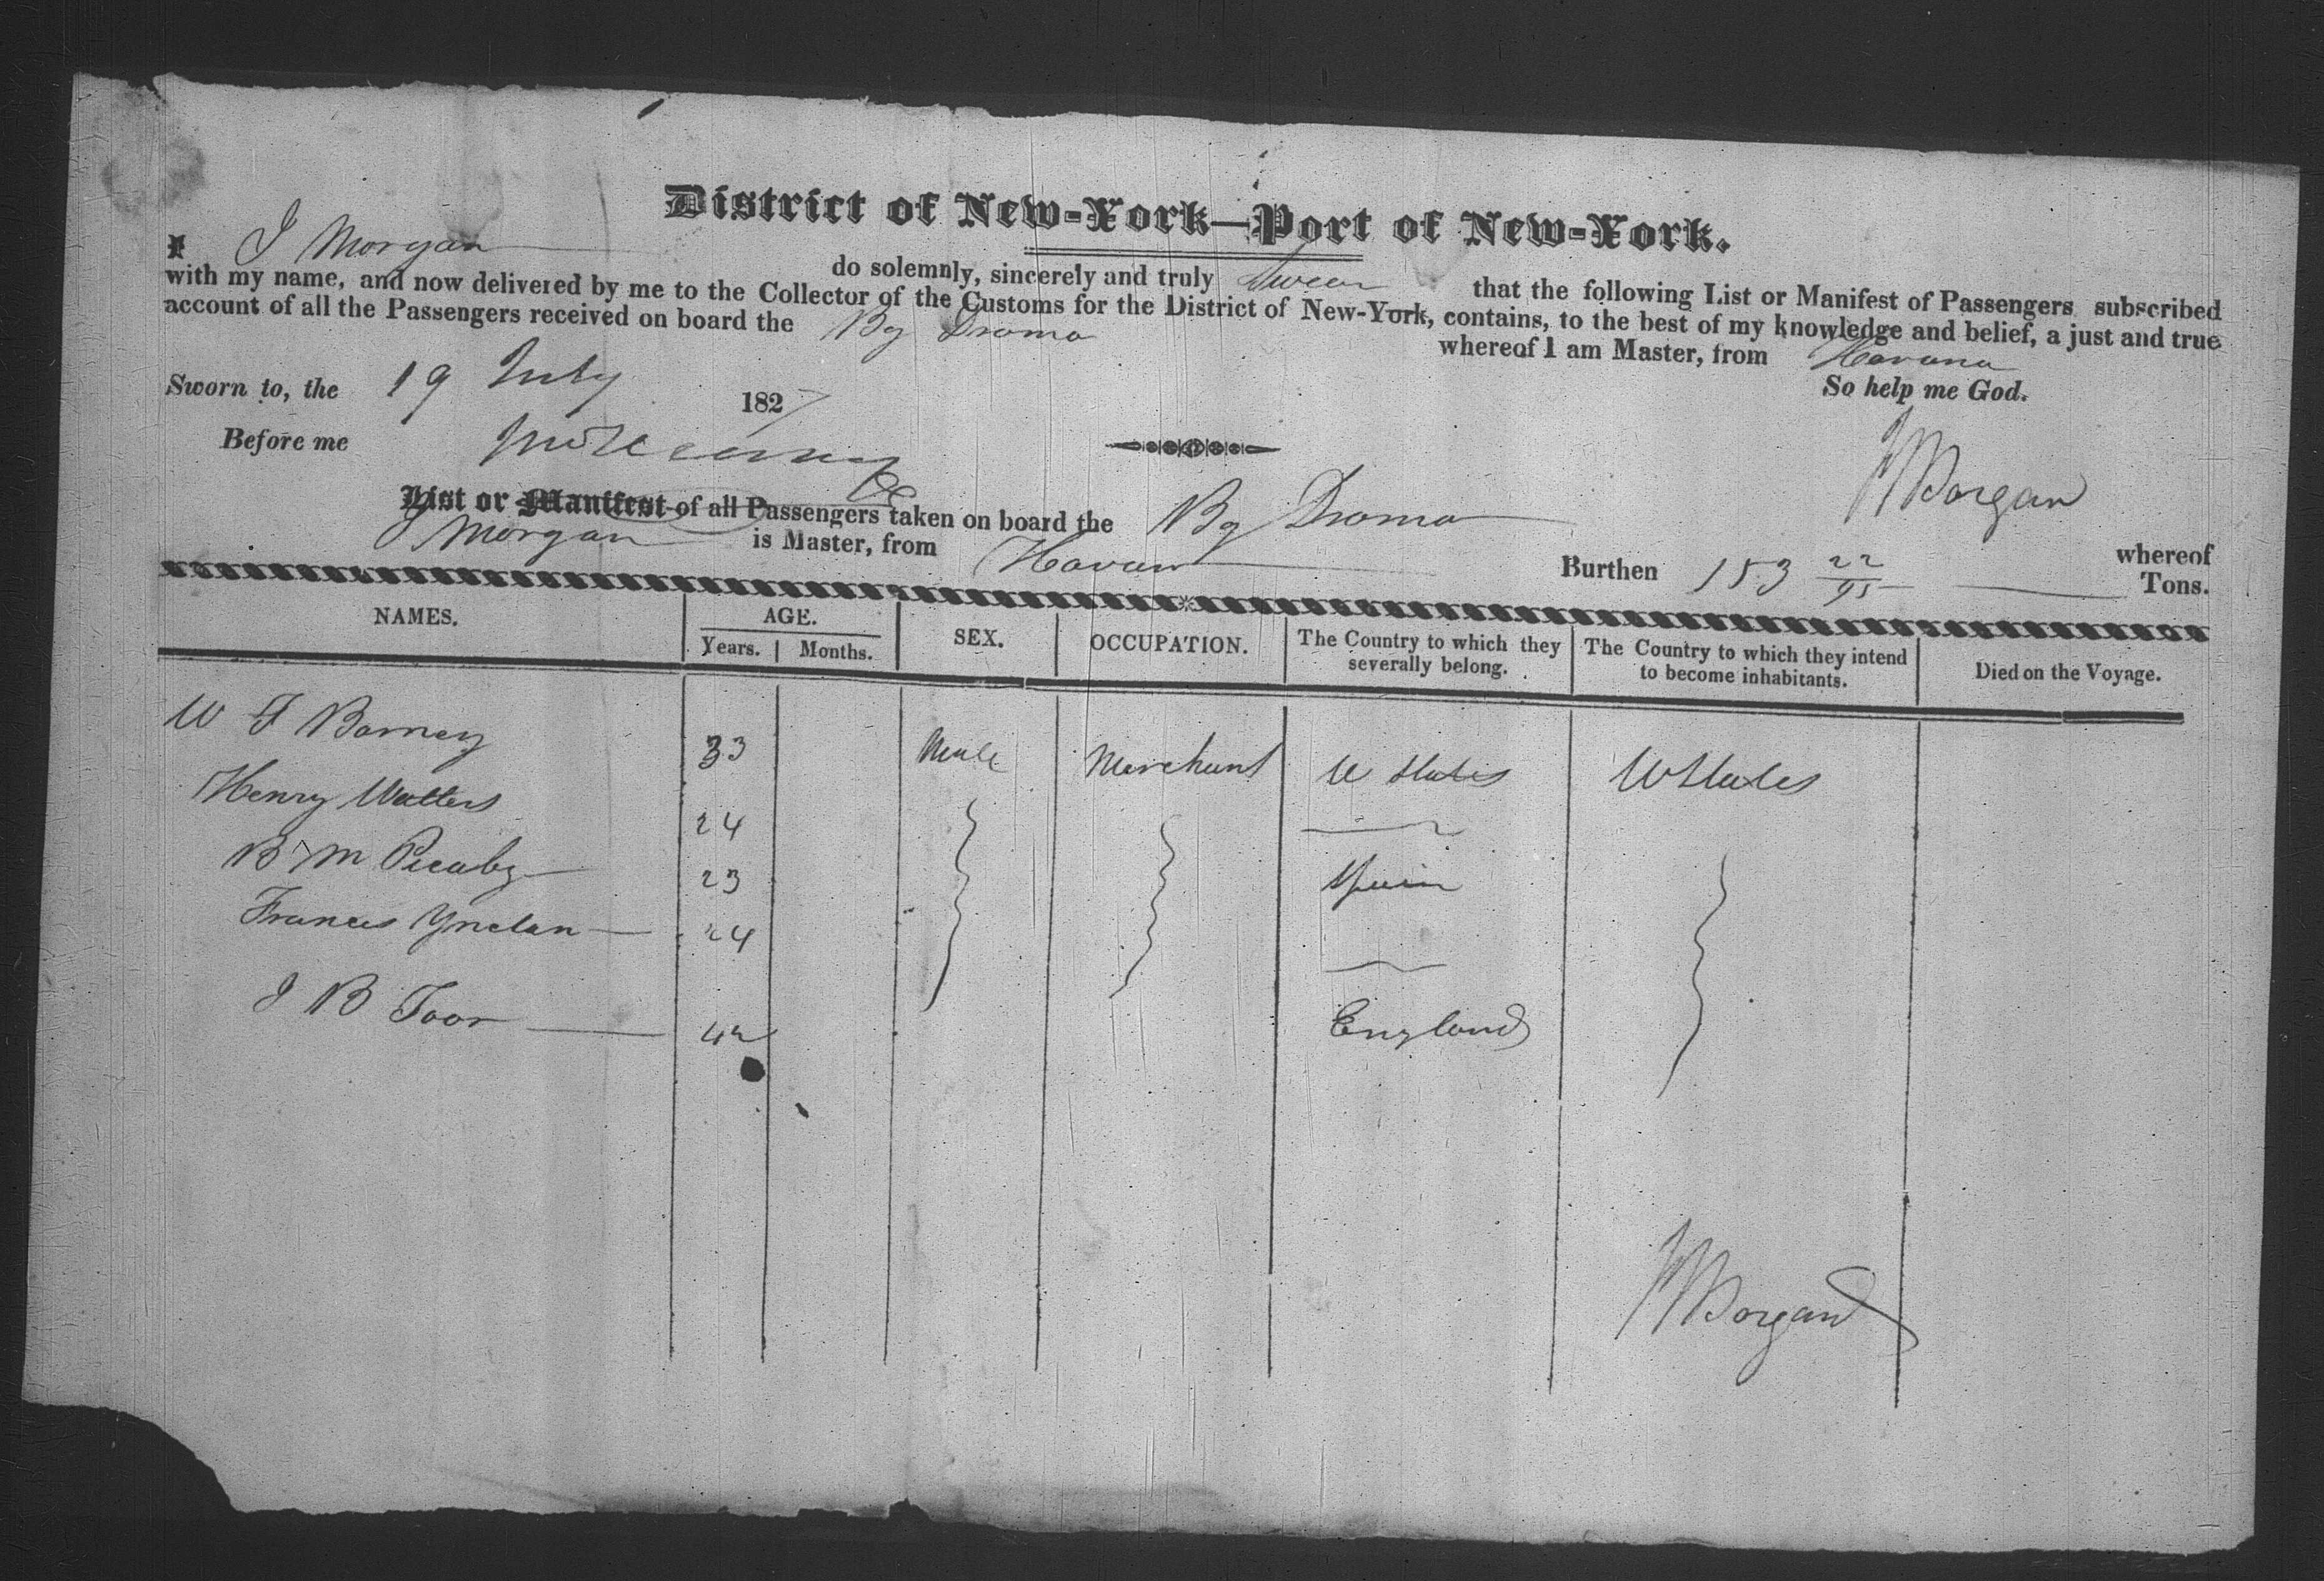 District of New-York—Port of New-York.
I J Morgan do solemnly, sincerely and truly Swear that the following List or Manifest of Passengers subscribed
with my name, and now delivered by me to the Collector of the Customs for the District of New-York, contains, to the best of my knowledge and belief, a just and true
account of all the Passengers received on board the Bg Droma whereof I am Master, from Havana
Sworn to, the 19 July 1827 So help me God.
Before me
J Morgan
List or Manifest of all Passengers taken on board the Bg Droma whereof
J Morgan is Master, from Havana Burthen 153 22/95 Tons.
NAMES. AGE. SEX. OCCUPATION. The Country to which they severally belong. The Country to which they intend to become inhabitants. Died on the Voyage.
Years. Months.
W F Barney 33 Male Merchant U States U States
Henry Watters 24
B M 23 Spain
Frances Ynclan 24
J B Toor 42 England
J Morgan